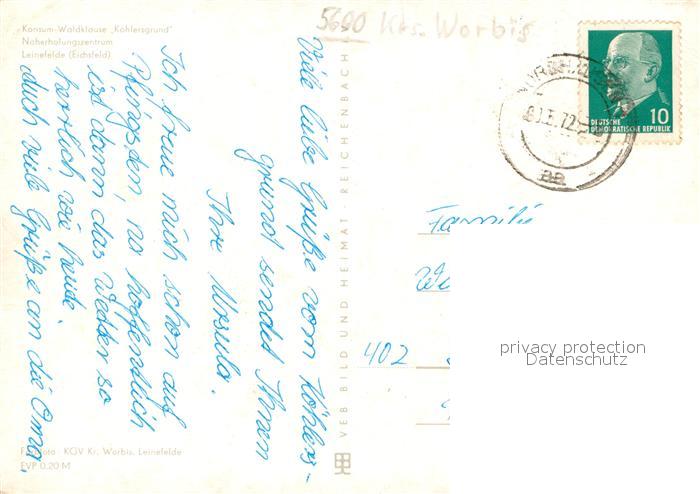 Konsum-Waldklause „Köhlersgrund"
Naherholungszentrum
Leinefelde (Eichsfeld)
5600 Krs. Worbis
Viele liebe Grüße vom Köhlers-
grund sendet Ihnen
Ihre Ursula.
Ich freue mich schon auf
Pfingsten, wo hoffentlich
ist dann das Wetter so
herrlich wie heute.
Auch viele Grüße an die Oma.
VEB BILD UND HEIMAT · REICHENBACH
DEUTSCHE
DEMOKRATISCHE REPUBLIK
10
72
aa
Familie
402
privacy protection
Datenschutz
KGV Kr. Worbis, Leinefelde
EVP 0.20 M